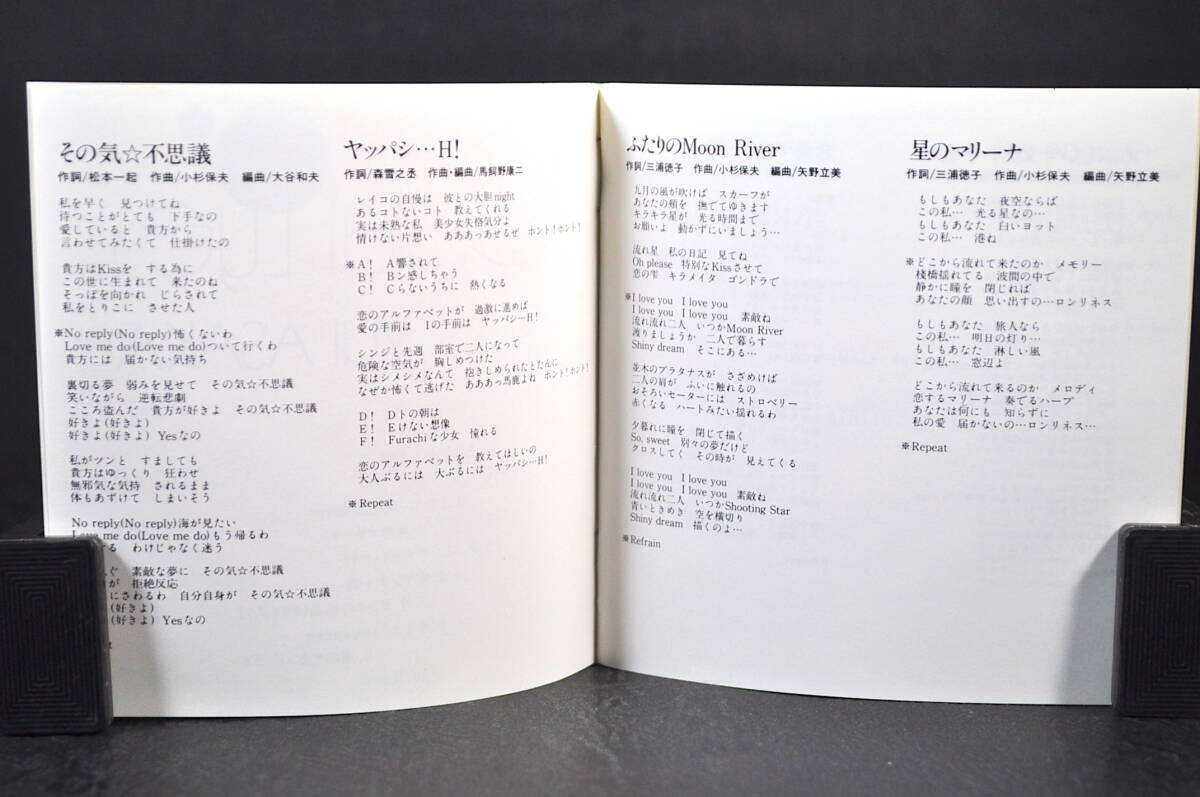 その気☆不思議
作詞/松本一起 作曲/小杉保夫 編曲/大谷和夫
私を早く 見つけてね
待つことがとても 下手なの
愛していると 貴方から
言わせてみたくて 仕掛けたの
貴方はKissを する為に
この世に生まれて 来たのね
そっぽを向かれ じらされて
私をとりこに させた人
※No reply(No reply)怖くないわ
Love me do(Love me do)ついて行くわ
貴方には 届かない気持ち
裏切る夢 弱みを見せて その気☆不思議
笑いながら 逆転悲劇
こころ盗んだ 貴方が好きよ その気☆不思議
好きよ(好きよ)
好きよ(好きよ) Yesなの
私がツンと すましても
貴方はゆっくり 狂わせ
無邪気な気持 されるまま
体もあずけて しまいそう
No reply(No reply)海が見たい
Love me do(Love me do)もう帰るわ
る わけじゃなく迷う
ぐ 素敵な夢に その気☆不思議
が 拒絶反応
にさわるわ 自分自身が その気☆不思議
(好きよ)
(好きよ) Yesなの
ヤッパシ…H!
作詞/森雪之丞 作曲・編曲/馬飼野康二
レイコの自慢は 彼との大胆night
あるコトないコト 教えてくれる
実は未熟な私 美少女失格気分よ
情けない片想い あああっあせるぜ ホント!ホント!
※A! A響されて
B! Bン感しちゃう
C! Cらないうちに 熱くなる
恋のアルファベットが 過激に進めば
愛の手前は Iの手前は ヤッパシ…H!
シンジと先週 部室で二人になって
危険な空気が 胸しめつけた
実はシメシメなんて 抱きしめられたとたんに
なぜか怖くて逃げた あああっ馬鹿よね ホント!ホント!
D! Dトの朝は
E! Eけない想像
F! Furachiな少女 憧れる
恋のアルファベットを 教えてほしいの
大人ぶるには 大ぶるには ヤッパシ…H!
※Repeat
ふたりのMoon River
作詞/三浦徳子 作曲/小杉保夫 編曲/矢野立美
九月の風が吹けば スカーフが
あなたの頬を 撫でてゆきます
キラキラ星が 光る時間まで
お願いよ 動かずにいましょう…
流れ星 私の日記 見てね
Oh please 特別なKissさせて
恋の雫 キラメイタ ゴンドラで
※I love you I love you
I love you I love you 素敵ね
流れ流れ二人 いつかMoon River
渡りましょうか 二人で暮らす
Shiny dream そこにある…
並木のプラタナスが さざめけば
二人の肩が ふいに触れるの
おそろいセーターには ストロベリー
赤くなる ハートみたい揺れるわ
夕暮れに瞳を 閉じて描く
So, sweet 別々の夢だけど
クロスしてく その時が 見えてくる
I love you I love you
I love you I love you 素敵ね
流れ流れ二人 いつかShooting Star
青いときめき 空を横切り
Shiny dream 描くのよ…
※Refrain
星のマリーナ
作詞/三浦徳子 作曲/小杉保夫 編曲/矢野立美
もしもあなた 夜空ならば
この私… 光る星なの…
もしもあなた 白いヨット
この私… 港ね
※どこから流れて来たのか メモリー
桟橋揺れてる 波間の中で
静かに瞳を 閉じれば
あなたの顔 思い出すの…ロンリネス
もしもあなた 旅人なら
この私… 明日の灯り…
もしもあなた 淋しい風
この私… 窓辺よ
どこから流れて来るのか メロディ
恋するマリーナ 奏でるハープ
あなたは何にも 知らずに
私の愛 届かないの…ロンリネス…
※Repeat